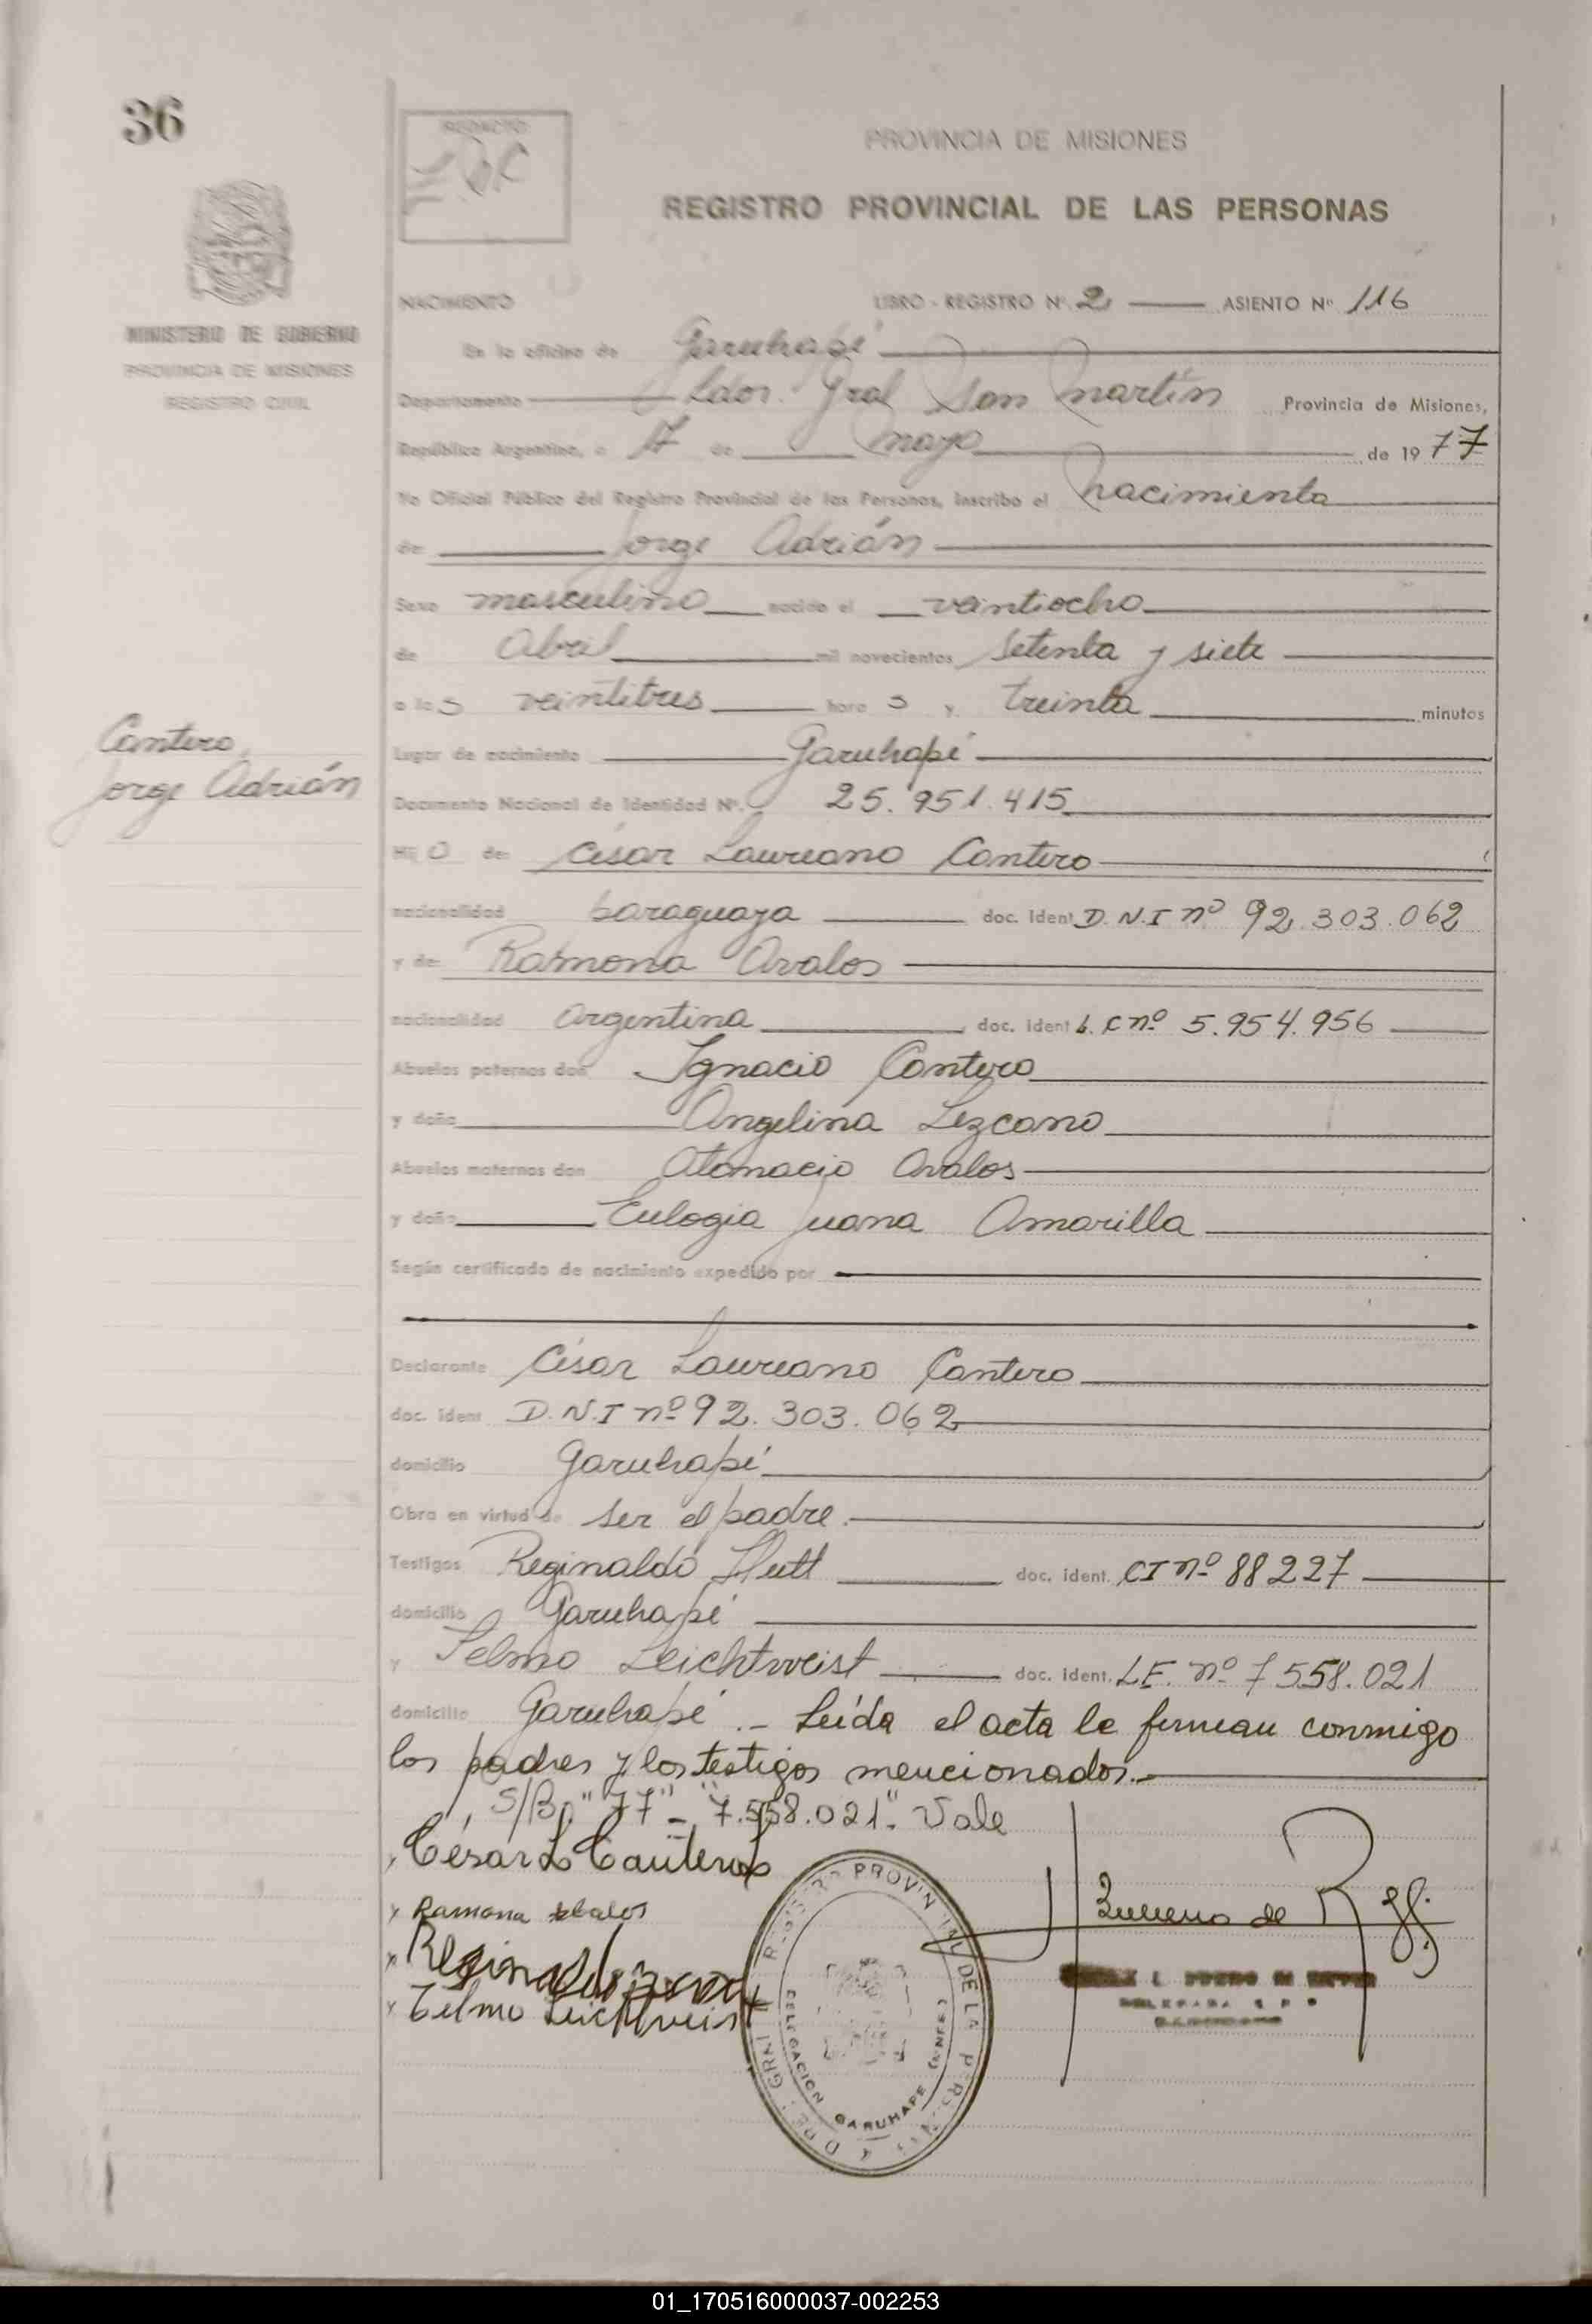 36
REDACTO
PROVINCIA DE MISIONES
REGISTRO PROVINCIAL DE LAS PERSONAS
MINISTERIO DE GOBIERNO
PROVINCIA DE MISIONES
REGISTRO CIVIL
NACIMIENTO LIBRO - REGISTRO Nº 2 ASIENTO Nº 116
En la oficina de Garuhapé
Departamento Ldor. Gral San Martín Provincia de Misiones,
República Argentina, a 7 de mayo de 1977
Yo Oficial Público del Registro Provincial de las Personas, inscribo el nacimiento
de Jorge Adrián
Sexo masculino nacido el veintiocho
de Abril mil novecientos setenta y siete
a las veintitres horas y treinta minutos
Cantero,
Jorge Adrián
Lugar de nacimiento Garuhapé
Documento Nacional de Identidad Nº. 25.951.415
Hijo de César Laureano Cantero
nacionalidad paraguaya doc. ident D.N.I nº 92.303.062
y de Ramona Avalos
nacionalidad Argentina doc. ident L.C nº 5.954.956
Abuelos paternos don Ignacio Cantero
y doña Angelina Lezcano
Abuelos maternos don Atanacio Avalos
y doña Eulogia Juana Amarilla
Según certificado de nacimiento expedido por
Declarante César Laureano Cantero
doc. ident D.N.I nº 92.303.062
domicilio Garuhapé
Obra en virtud de ser el padre.
Testigos Reginaldo doc. ident. CI nº 88227
domicilio Garuhapé
y Telmo Leichtweist doc. ident. L.E. nº 7558.021
domicilio Garuhapé.- Leída el acta la firman conmigo
los padres y los testigos mencionados.-
S/B. "77" - "7.558.021". Vale
César L. Cantero
Ramona Abalos
Reginaldo
Telmo Leichtweist
DELEGACION GARUHAPE (MNES)
01_170516000037-002253